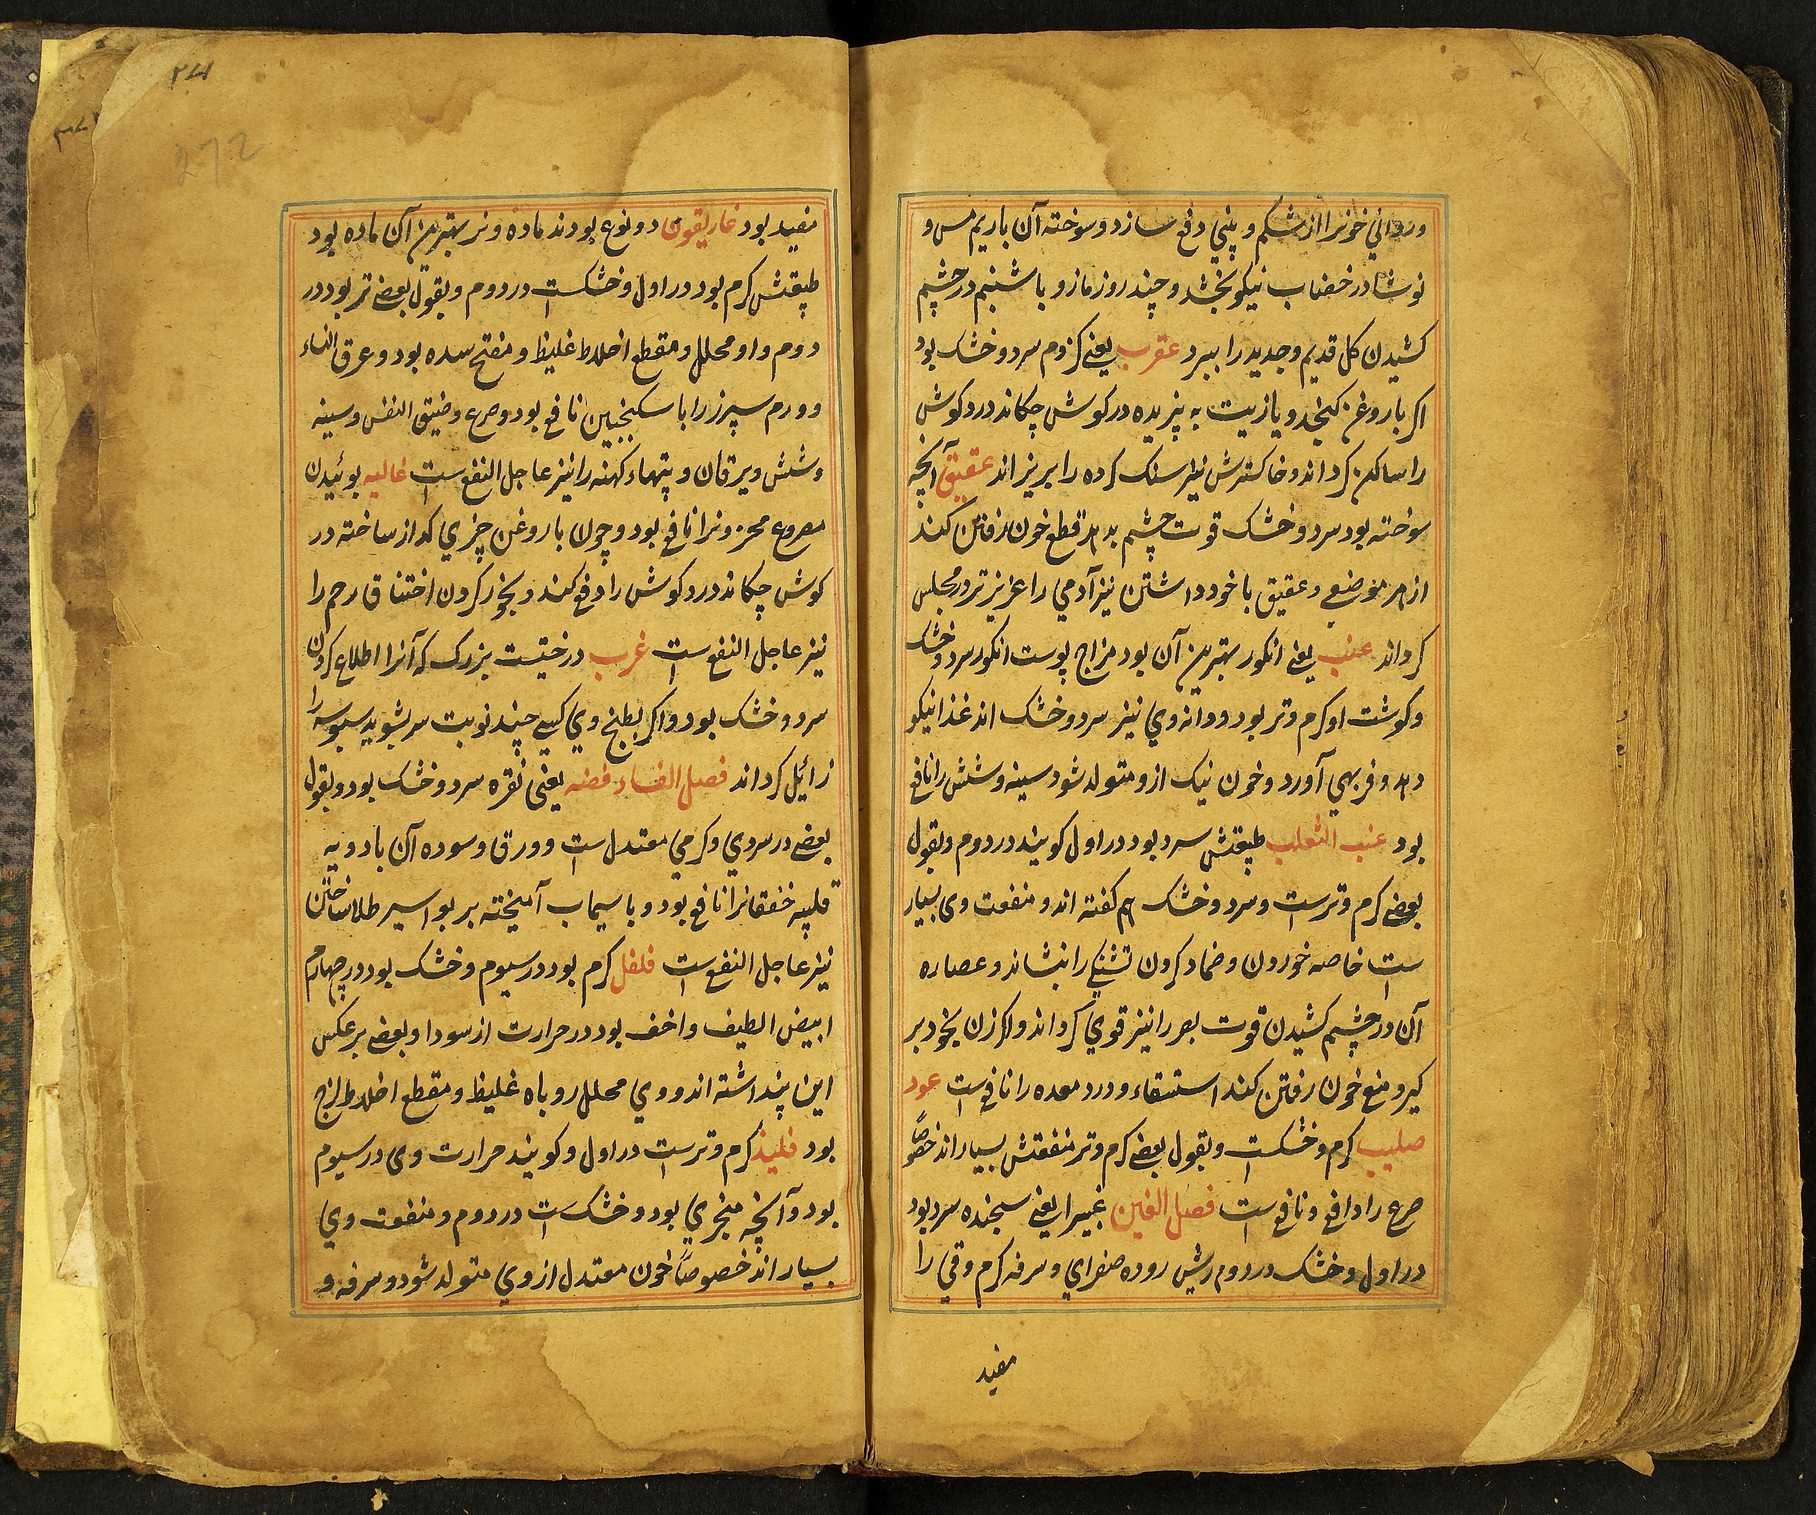 و روانی خونرا از شکم و بینی دفع سازد و سوخته آن باریم مس و
نوشادر خضاب نیکو بخشد و چند روز مازو با شبنم در چشم
کشیدن کل قدیم و جدید را ببرد عقرب یعنی کژدم سرد و خشک بود
اکر با روغن کنجد و یا زیت به پزیده در کوش چکاند درد کوش
را ساکن کرداند و خاکسترش نیز سنک کرده را بریزاند عقیق آنچه
سوخته بود سرد و خشک قوت چشم بدهد قطع خون رفتن کند
از هر موضعی و عقیق با خود داشتن نیز آدمي را عزیزتر در مجلس
کرداند عنب یعنی انکور بهترین آن بود مزاج پوست انکور سرد و خشک
و کوشت او کرم و تر بود و دانه وي نیز سرد و خشک اند غذا نیکو
دهد و فربهي آورد و خون نیک ازو متولد شود سینه و شش را نافع
بود عنب الثعلب طبیعتش سرد بود در اول کویند در دوم و بقول
بعضی کرم و ترست و سرد و خشک هم کفته اند و منفعت وی بسیار
است خاصه خوردن و ضماد کردن تشنکی را بنشاند و عصاره
آن در چشم کشیدن قوت بصر را نیز قوي کرداند و اکر زن بخود بر
کیرد منع خون رفتن کند استسقاء و درد معده را نافع است عود
صلیب کرم و خشکست و بقول بعضی کرم و تر منفعتش بسیار اند خصوصاً
صرع را دافع و نافع است فصل الغین غبیرا یعنی سنجده سرد بود
در اول و خشک در دوم ریش روده صفراي و سرفه کرم و قي را
مفید
۲۷۲
272
مفید بود غاریقون دو نوع بودند ماده و نر بهترین آن ماده بود
طبیعتش کرم بود در اول و خشکست در دوم و بقول بعضی تر بود در
دوم و او محلل و مقطع اخلاط غلیظ و مفتح سده بود و عرق النساء
و ورم سپرز را با سکنجبین نافع بود و صرع و ضیق النفس و سینه
و شش و یرقان و تپهاء کهنه را نیز عاجل النفع است غالیه بوئیدن
مصروع محزونرا نافع بود و چون با روغن چیزي کداز ساخته در
کوش چکاند درد کوش را دفع کند و بخور کردن اختناق رحم را
نیز عاجل النفع است غرب درختیست بزرک که آنرا اطلاع کردن
سرد و خشک بود و اکر بطبخ وي کسي چند نوبت سر بشوید سبوسه را
زائیل کرداند فصل الفاء فضه یعنی نقره سرد و خشک بود و بقول
بعضی در سردي و کرمي معتدل است و ورق و سوده آن بادویه
قلبیه خفقانرا نافع بود و با سیماب آمیخته بر بواسیر طلا ساختن
نیز عاجل النفع است فلفل کرم بود در سیوم و خشک بود در چهارم
ابیض الطیف و اخف بود در حرارت از سودا و بعضی برعکس
این پنداشته اند و وي محلل رو باه غلیظ و مقطع اخلاط لزج
بود فلیذ کرم و ترست در اول و کویند حرارت وی در سیوم
بود و آنچه منجري بود و خشک است در دوم و منفعت وي
بسیار اند خصوصاً خون معتدل از وي متولد شود و سرفه و